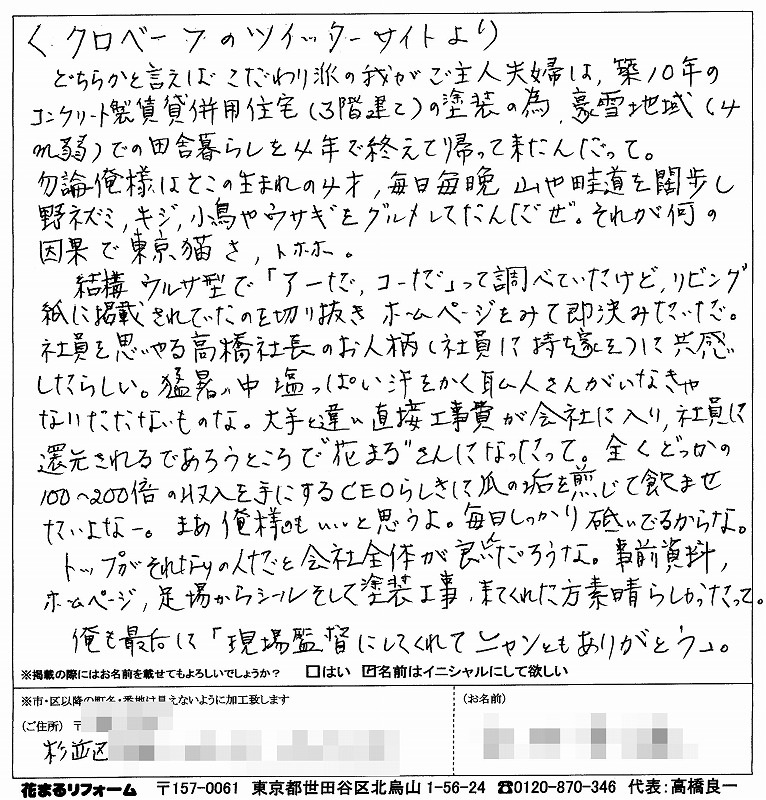 〈 クロベーフのツイッターサイトより
どちらかと言えばこだわり派の我がご主人夫婦は、築10年の
コンクリート製賃貸併用住宅(3階建て)の塗装の為、豪雪地域(4
m弱)での田舎暮らしを4年で終えて帰って来たんだって。
勿論俺様はそこの生まれの4才,毎日毎晩 山や畦道を闊歩し
野ネズミ,キジ,小鳥やウサギをグルメしてたんだぜ。それが何の
因果で東京猫さ,トホホ。
結構、ウルサ型で「アーだ,コーだ」って調べていたけど,リビング
紙に掲載されていたのを切り抜きホームページをみて即決みたいだ。
社員を思いやる高橋社長のお人柄(社員に持ち家を)に共感
したらしい。猛暑の中 塩っぱい汗をかく職人さんがいなきゃ
なりたたないものな。大手と違い直接工事費が会社に入り,社員に
還元されるであろうところで"花まる"さんになったって。全くどっかの
100〜200倍の収入を手にするCEOらしきに爪の垢を煎じて飲ませ
たいよなー。まあ俺様のもいいと思うよ。毎日しっかり砥いでるからな。
トップがそれなりの人だと会社全体が良いだろうな。事前資料,
ホームページ,足場からシールそして塗装工事,来てくれた方素晴らしかったって。
俺も最后に「現場監督にしてくれてニャンともありがとう」。
※掲載の際にはお名前を載せてもよろしいでしょうか? □はい ☑名前はイニシャルにして欲しい
※市・区以降の町名・番地は見えないように加工致します
(お名前)
(ご住所) 〒
杉並区
花まるリフォーム 〒157-0061 東京都世田谷区北烏山 1-56-24 ☎0120-870-346 代表:高橋良一